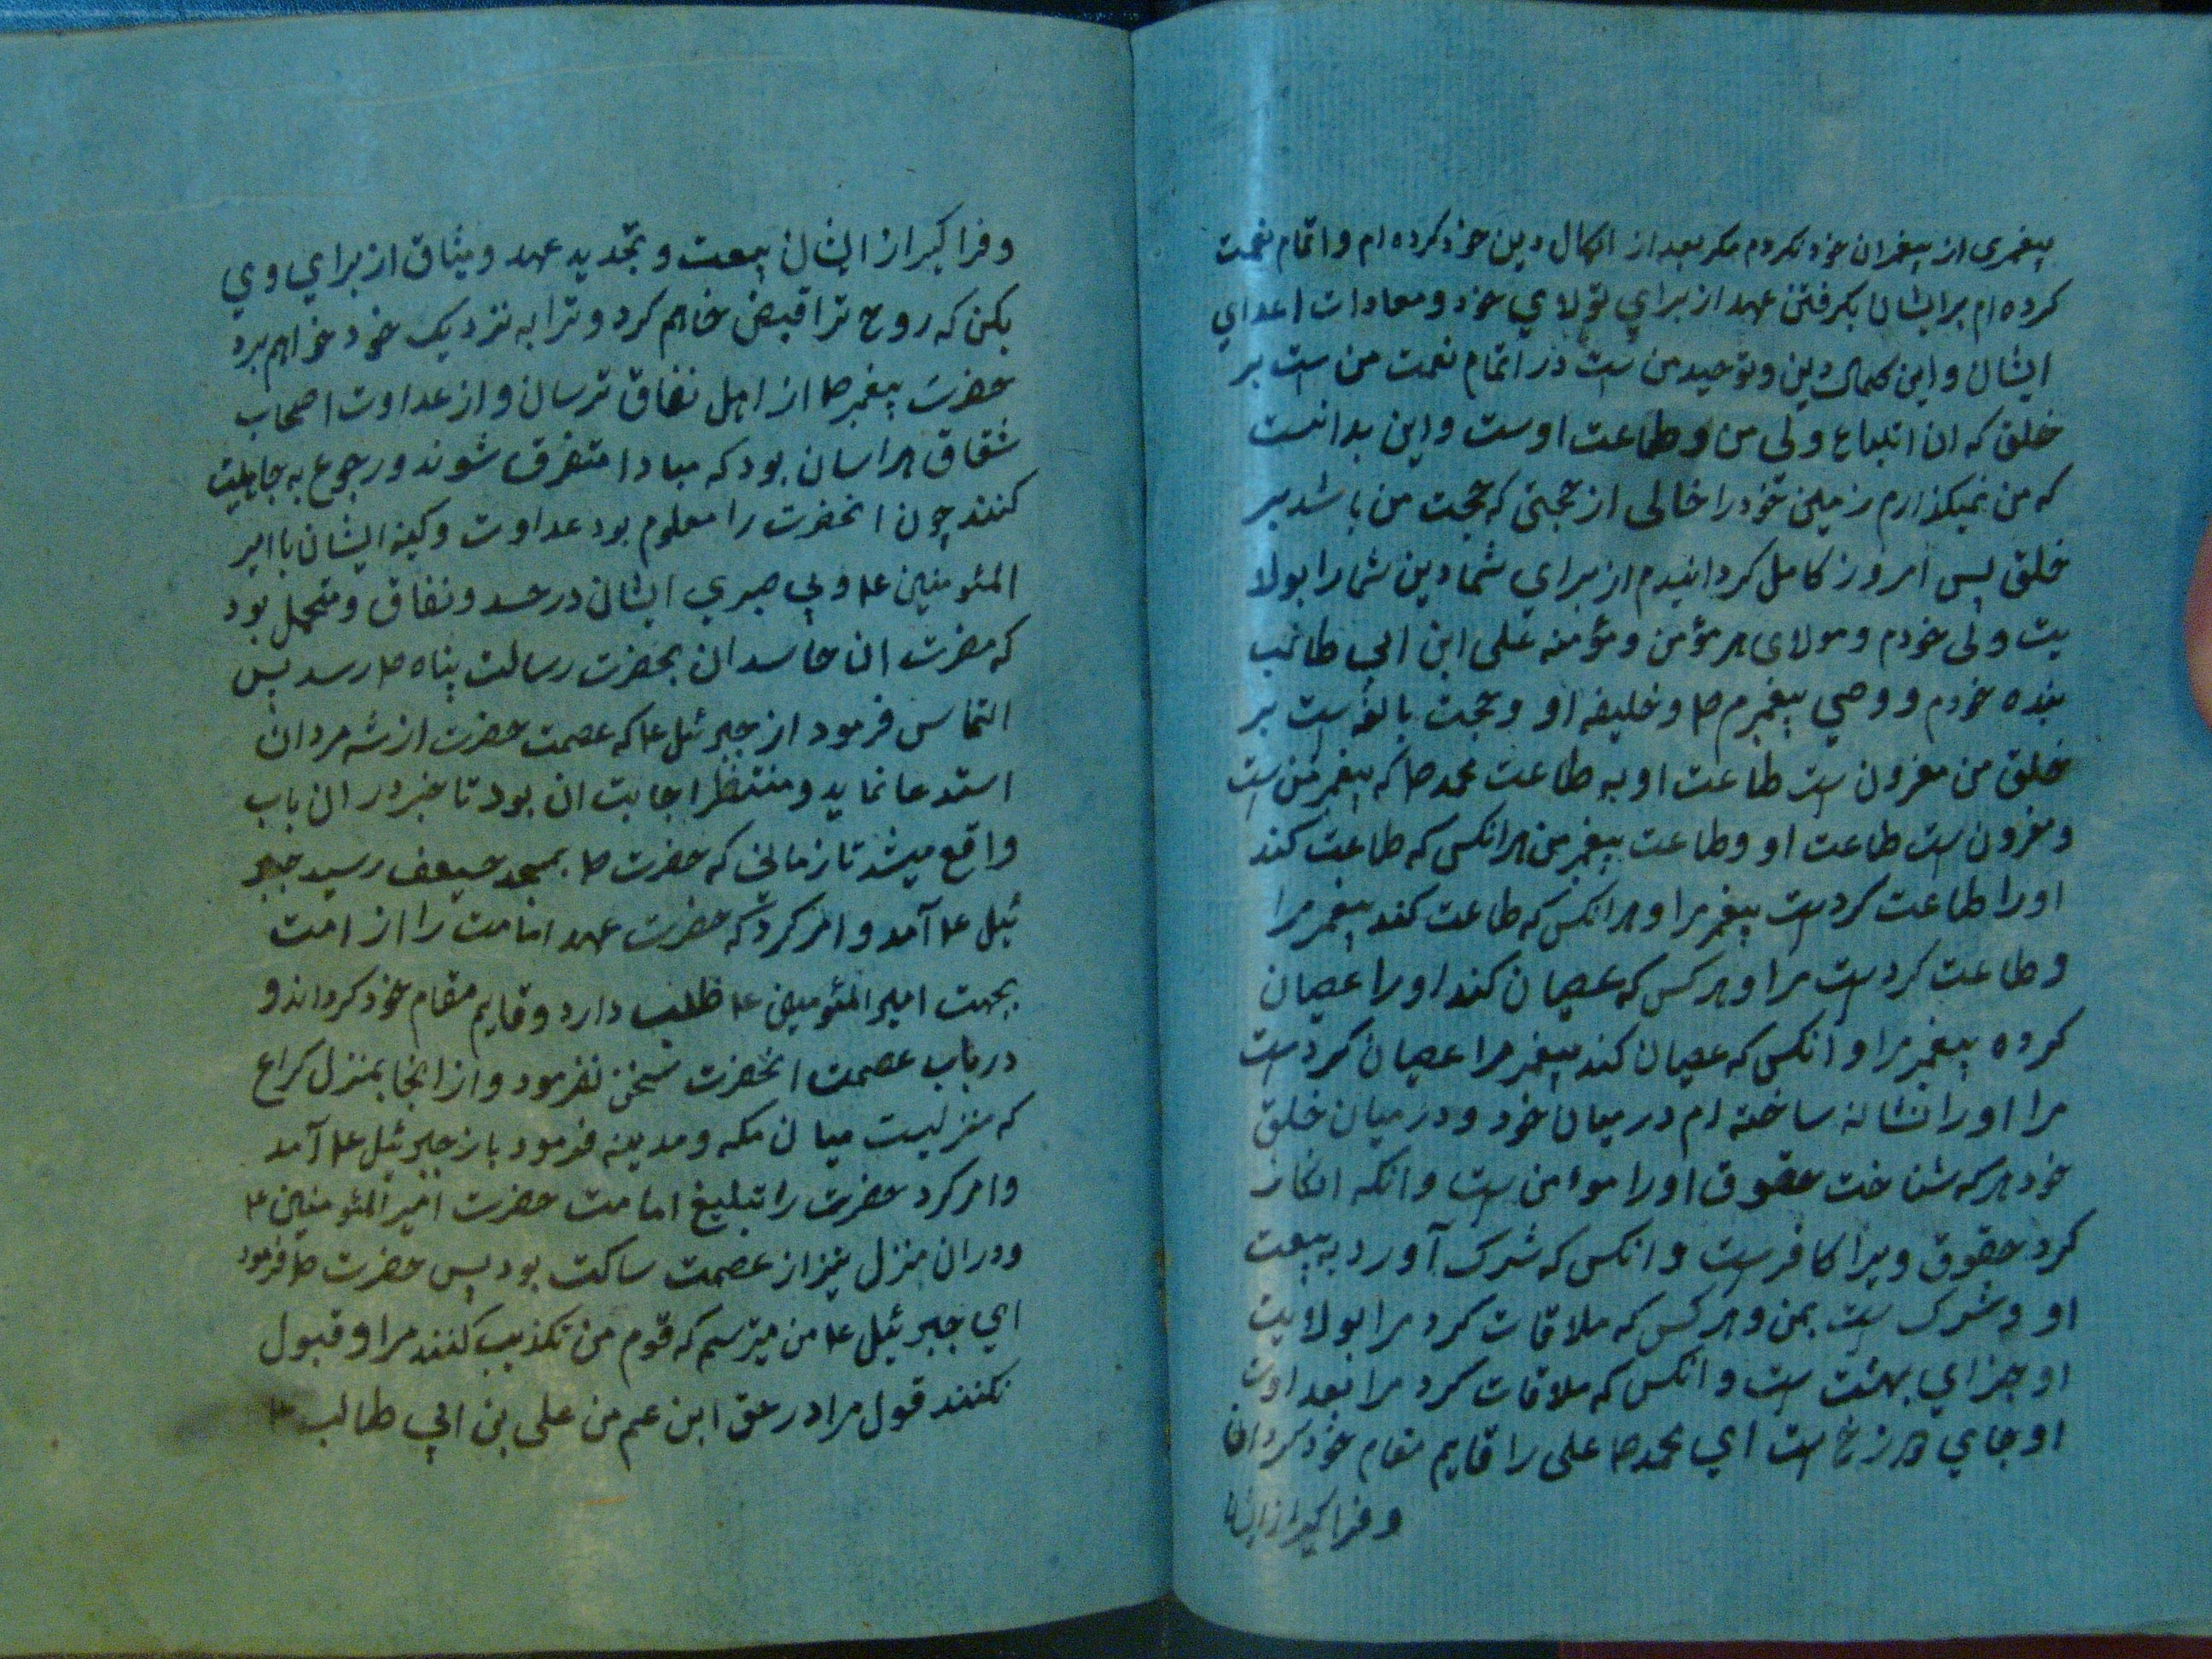 پیغمری از پیغمران خود نکردم مکر بعد از اکمال دین خود کرده ام و اتمام نعمت
کرده ام بر ایشان بکرفتن عهد از برای تولای خود و معادات اعدای
ایشان و این کمال دین و توحید من است در اتمام نعمت من است بر
خلق که ان اتباع ولی من و طاعت اوست و این بدانست
که من نمیکذارم زمین خود را خالی از حجتی که حجت من باشد بر
خلق پس امروز کامل کردانیدم از برای شما دین شما را بولا
یت ولی خودم و مولای هر مؤمن و مؤمنه علی ابن ابی طالب
بنده خودم و وصی پیغمبرم ص و خلیفه او و حجت بالغه است بر
خلق من مقرون است طاعت او به طاعت محمد ص که پیغمر من است
و مقرون است طاعت او و طاعت پیغمر من هر انکس که طاعت کند
او را طاعت کردست پیغمر مرا و هر انکس که طاعت کند پیغمر مرا
و طاعت کردست مرا و هر کس که عصیان کند او را عصیان
کرده پیغمر مرا و انکس که عصیان کند پیغمر مرا عصیان کردست
مرا او را نشانه ساخته ام در میان خود و در میان خلق
خود هر که شناخت حقوق او را موأمن است و انکه انکار
کرد حقوق ویرا کافرست و انکس که شرک آورد به بیعت
او مشرک است بمن و هر کس که ملاقات کرد مرا بولایت
او جزای بهشت است و انکس که ملاقات کرد مرا بعداوت
او جای دوزخ است ای محمد ص علی را قایم مقام خود کردان
و فرا کیر از ایشان
و فرا کیر از ایشان بیعت و تجدید عهد و میثاق از برای وی
بکن که روح ترا قبض خاهم کرد و ترا به نزدیک خود خواهم برد
حضرت پیغمبر ص از اهل نفاق ترسان و از عداوت اصحاب
شقاق هراسان بود که مبادا متفرق شوند و رجوع به جاهلیت
کنند چون انحضرت را معلوم بود عداوت و کینه ایشان با امیر
المئومنین ع و بی صبری ایشان در حسد و نفاق و متحمل بود
که مضرت ان حاسدان بحضرت رسالت پناه ص رسد پس
التماس فرمود از جبرئیل ع که عصمت حضرت از شه مردان
استدعا نماید و منتظر اجابت ان بود تا خبر در ان باب
واقع میشد تا زمانی که حضرت ص بمسجد حیعف رسید جبر
ئیل ع آمد و امر کرد که حضرت عهد امامت را از امت
بجهت امیر المئومنین ع طلب دارد و قایم مقام خود کرداند و
در باب عصمت انحضرت سخن نفرمود و از انجا بمنزل کراع
که منزلیست میان مکه و مدینه فرمود باز جبرئیل ع آمد
و امر کرد حضرت را تبلیغ امامت حضرت امیر المئومنین ع
و در ان منزل نیز از عصمت ساکت بود پس حضرت ص فرمود
ای جبرئیل ع من میترسم که قوم من تکذیب کنند مرا و قبول
نکنند قول مرا در حق ابن عم من علی بن ابی طالب ع